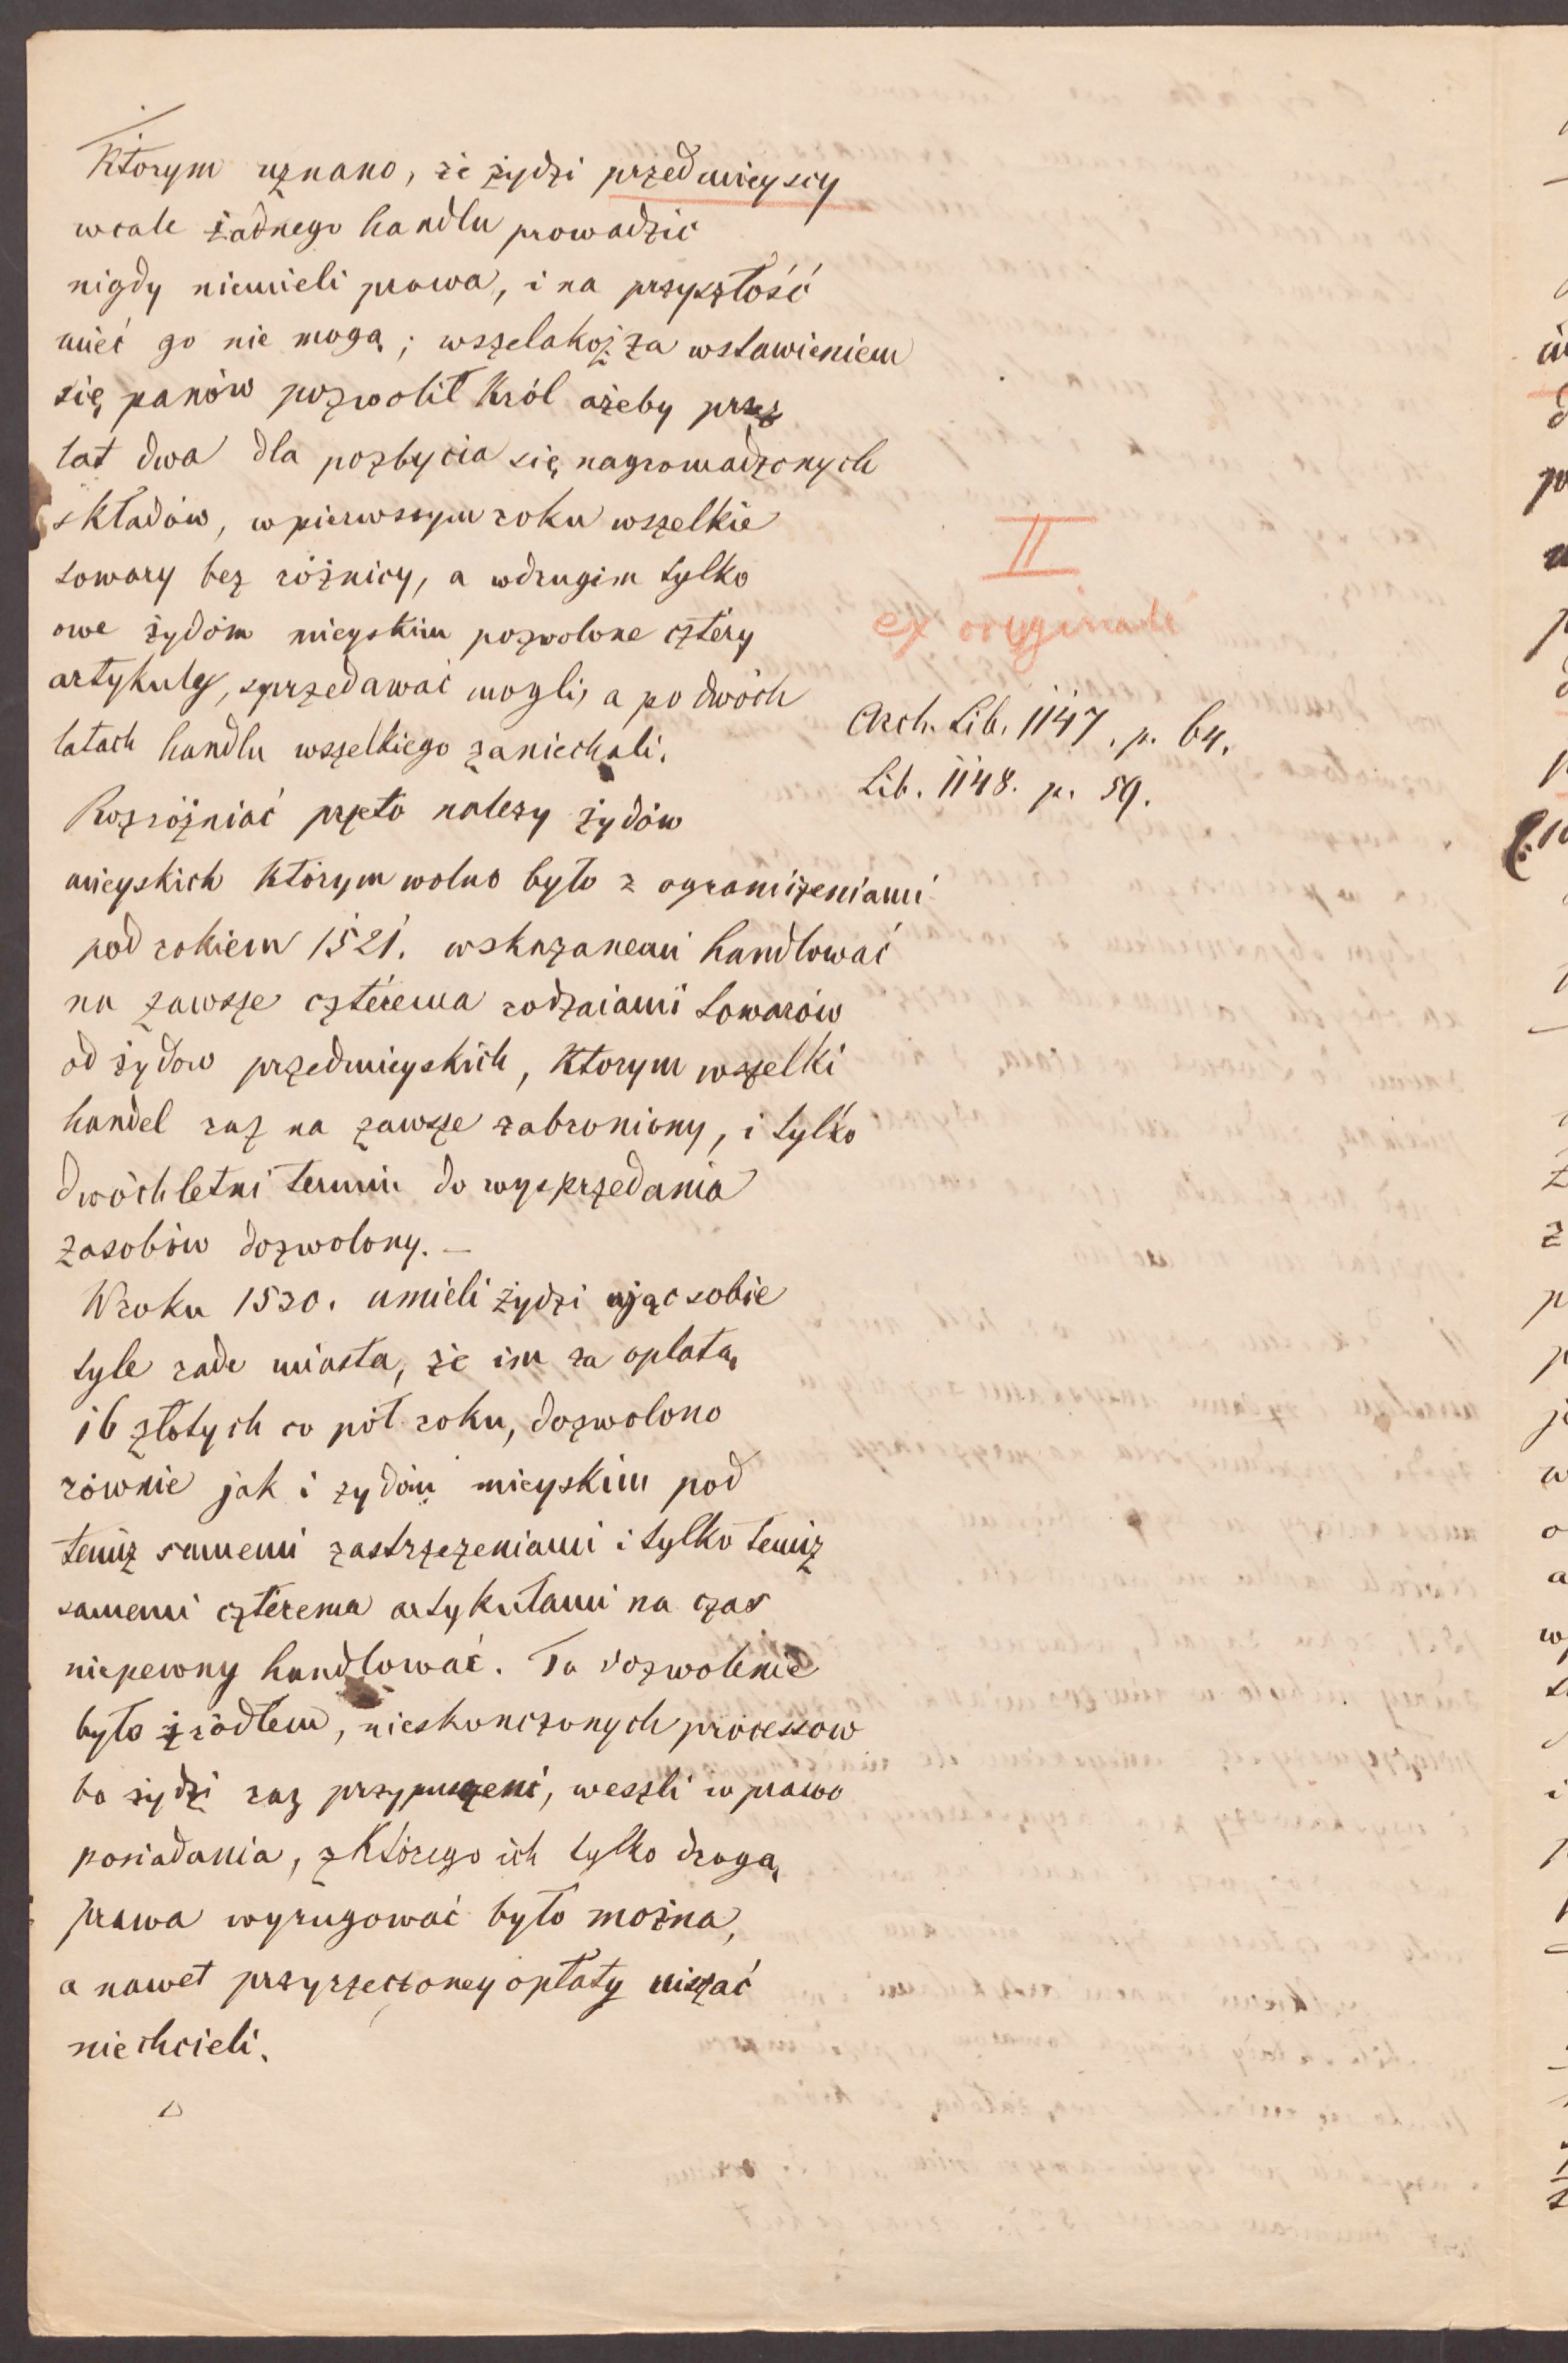 Ktorym uznano, że żydzi przedmieyscy
wcale żadnego handlu prowadzić
nigdy niemieli prawa, i na przyszłość
mieć go nie mogą; wszelakoż za wstawieniem
się panów pozwolił Król ażeby przez
lat dwa dla pozbycia się nagromadzonych
składów, w pierwszym roku wszelkie
towary bez różnicy, a w drugim tylko
owe żydóm mieyskim pozwolone cztéry
artykuły, sprzedawać mogli, a po dwóch
latach handlu wszelkiego zaniechali.
II
ex originali
Arch. Lib. 1147. p. 64.
Lib. 1148. p. 59.
Rozróżniać przeto należy żydów
mieyskich którym wolno było z ograniczeniami
pod rokiem 1521. wskazanemi handlować
na zawsze cztérema rodzaiami towarów
od żydow przedmieyskich, Ktorym wszelki
handel raz na zawsze zabroniony, i tylko
dwóchletni termin do wysprzedania
zasobów dozwolony. —
W roku 1530. umieli żydzi ująć sobie
tyle radę miasta, że im za opłatą
16 złotych co pół roku, dozwolono
równie jak i żydóm mieyskim pod
temiż samemi zastrzeżeniami i tylko temiż
samemi cztérema artykułami na czas
niepewny handlować. To dozwolenie
było źródłem, nieskonczonych processow
bo żydzi raz przypuszczeni, weszli w prawo
posiadania, z którego ich tylko drogą
prawa wyrugować było można,
a nawet przyrzeczoney opłaty uiszczać
nie chcieli.